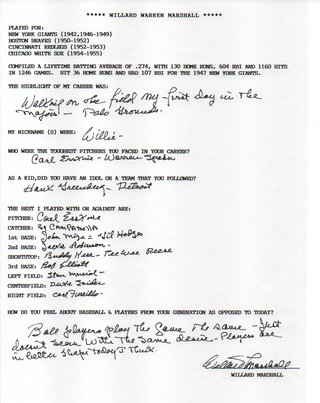 ***** WILLARD WARREN MARSHALL *****
PLAYED FOR:
NEW YORK GIANTS (1942,1946-1949)
BOSTON BRAVES (1950-1952)
CINCINNATI REDLEGS (1952-1953)
CHICAGO WHITE SOX (1954-1955)
COMPILED A LIFETIME BATTING AVERAGE OF .274, WITH 130 HOME RUNS, 604 RBI AND 1160 HITS
IN 1246 GAMES. HIT 36 HOME RUNS AND HAD 107 RBI FOR THE 1947 NEW YORK GIANTS.
THE HIGHLIGHT OF MY CAREER WAS:
Walking on the field my first day in the
majors - Polo Grounds.
MY NICKNAME (S) WERE: Willie -
WHO WERE THE TOUGHEST PITCHERS YOU FACED IN YOUR CAREER?
Carl Erskine - Warren Spahn
AS A KID, DID YOU HAVE AN IDOL OR A TEAM THAT YOU FOLLOWED?
Hank Greenberg - Detroit
THE BEST I PLAYED WITH OR AGAINST ARE:
PITCHER: Carl Erskine
CATCHER: Roy Campanella
1st BASE: John Mize - Gil Hodges
2nd BASE: Jackie Robinson -
SHORTSTOP: Buddy Kerr - Pee Wee Reese
3rd BASE: Bob Elliott
LEFT FIELD: Stan Musial -
CENTERFIELD: Duke Snider
RIGHT FIELD: Carl Furillo
HOW DO YOU FEEL ABOUT BASEBALL & PLAYERS FROM YOUR GENERATION AS OPPOSED TO TODAY?
Ball players play the game the same - Just
doesn't seem with the same desire - Players are
in better shape today I think.
Willard Marshall
WILLARD MARSHALL